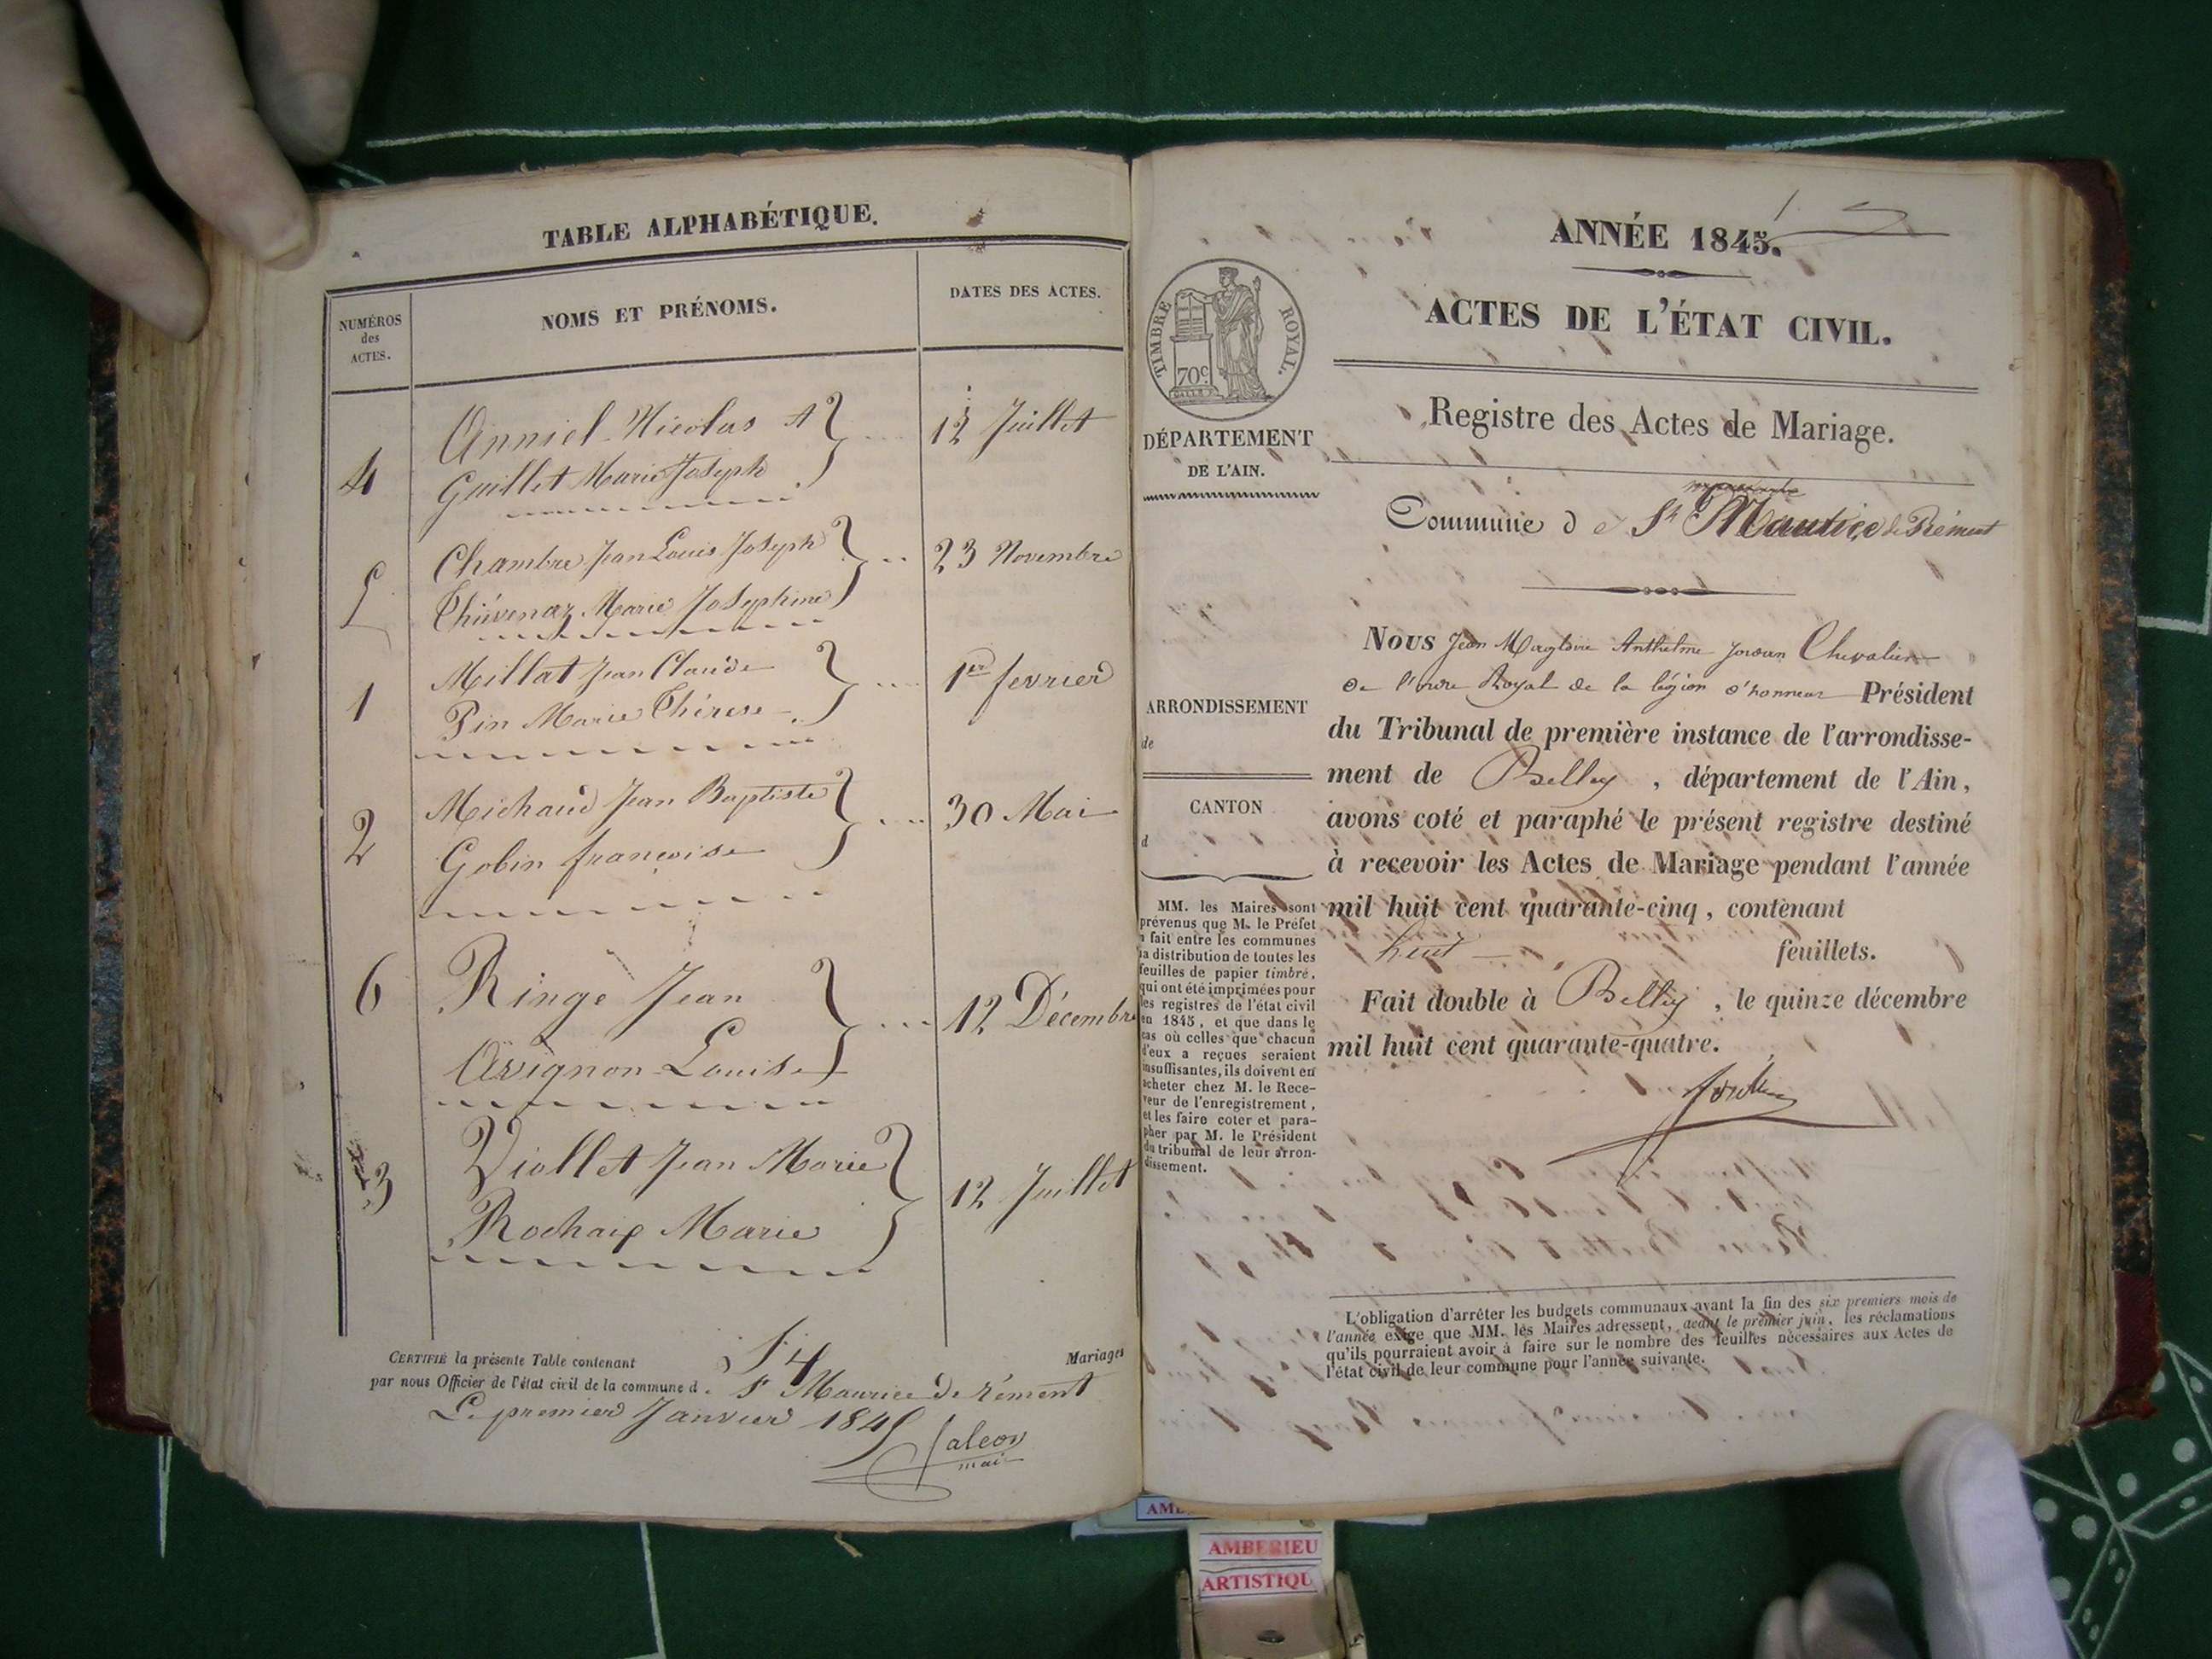 TABLE ALPHABÉTIQUE.
NUMÉROS
des
ACTES.
NOMS ET PRÉNOMS.
DATES DES ACTES.
4
Anniel Nicolas A
Guillet Marie Joseph
12 Juillet
5
Chambre Jean Louis Joseph
Thievenaz Marie Josephine
23 Novembre
1
Millat Jean Claude
Pin Marie Thérese
1er fevrier
2
Michaud Jean Baptiste
Gobin françoise
30 Mai
6
Ringe Jean
Avignon Louise
12 Décembre
3
Viollet Jean Marie
Rochaix Marie
12 Juillet
CERTIFIÉ la présente Table contenant
Mariages
par nous Officier de l'état civil de la commune d
St Maurice de rément
Le premier Janvier 1845
falcon
mai
1
ANNÉE 1845.
TIMBRE ROYAL.
70c
ACTES DE L'ÉTAT CIVIL.
Registre des Actes de Mariage.
DÉPARTEMENT
DE L'AIN.
Commune de St Maurice de Rément
Nous Jean Magloire Anthelme Chevalier
De l'ordre Royal de la légion d'honneur Président
du Tribunal de première instance de l'arrondisse-
ment de Belley, département de l'Ain,
avons coté et paraphé le présent registre destiné
à recevoir les Actes de Mariage pendant l'année
mil huit cent quarante-cinq, contenant
huit feuillets.
Fait double à Belley, le quinze décembre
mil huit cent quarante-quatre.
ARRONDISSEMENT
de
CANTON
d
MM. les Maires sont
prévenus que M. le Préfet
a fait entre les communes
la distribution de toutes les
feuilles de papier timbré,
qui ont été imprimées pour
les registres de l'état civil
en 1845, et que dans le
cas où celles que chacun
d'eux a reçues seraient
insuffisantes, ils doivent en
acheter chez M. le Rece-
veur de l'enregistrement,
et les faire coter et para-
pher par M. le Président
du tribunal de leur arron-
dissement.
L'obligation d'arrêter les budgets communaux avant la fin des six premiers mois de
l'année exige que MM. les Maires adressent, avant le premier juin, les réclamations
qu'ils pourraient avoir à faire sur le nombre des feuilles nécessaires aux Actes de
l'état civil de leur commune pour l'année suivante.
AMBERIEU
ARTISTIQU